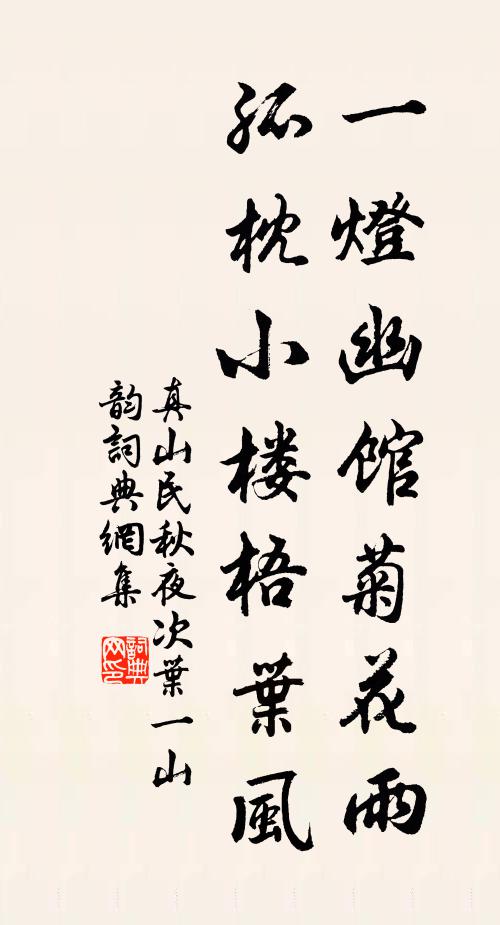 一燈幽館菊花雨
孤枕小楼梧葉風
真山民秋夜次葉一山
韵詞典網集
詞典
网印